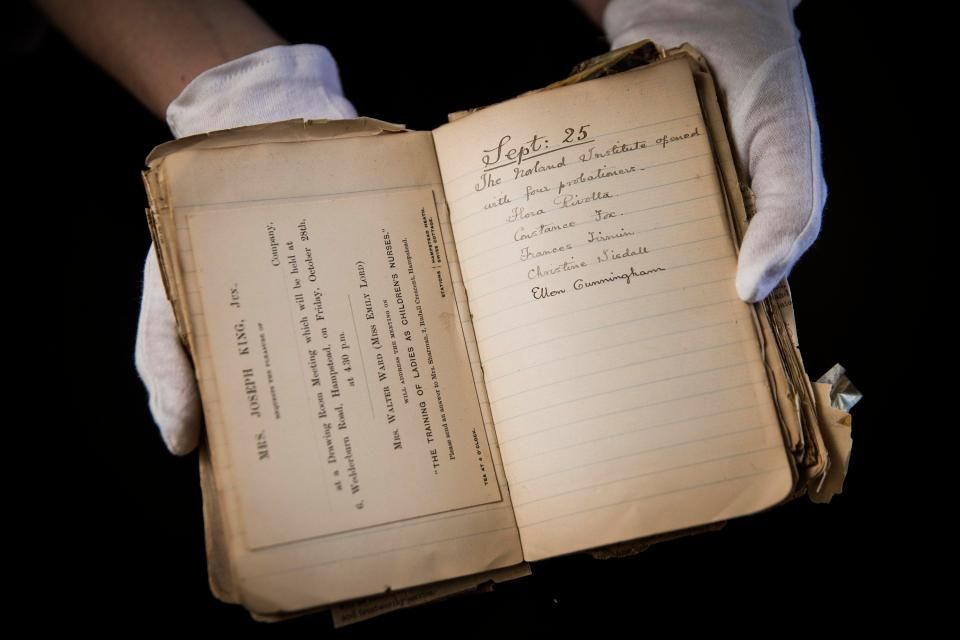 MRS. JOSEPH KING, Jun.,
REQUESTS THE PLEASURE OF
Company,
at a Drawing Room Meeting which will be held at
6, Wedderburn Road, Hampstead, on Friday, October 28th,
at 4.30 p.m.
MRS. WALTER WARD (MISS EMILY LORD)
WILL ADDRESS THE MEETING ON
"THE TRAINING OF LADIES AS CHILDREN'S NURSES."
Please send an answer to Mrs. Sharman, 2, Rudall Crescent, Hampstead.
STATIONS HAMPSTEAD HEATH.
SWISS COTTAGE.
TEA AT 4 O'CLOCK.
Sept: 25
The Norland Institute opened
with four probationers.
Flora Rivolta
Constance Fox.
Frances
Christine Tisdall
Ellen Cunningham